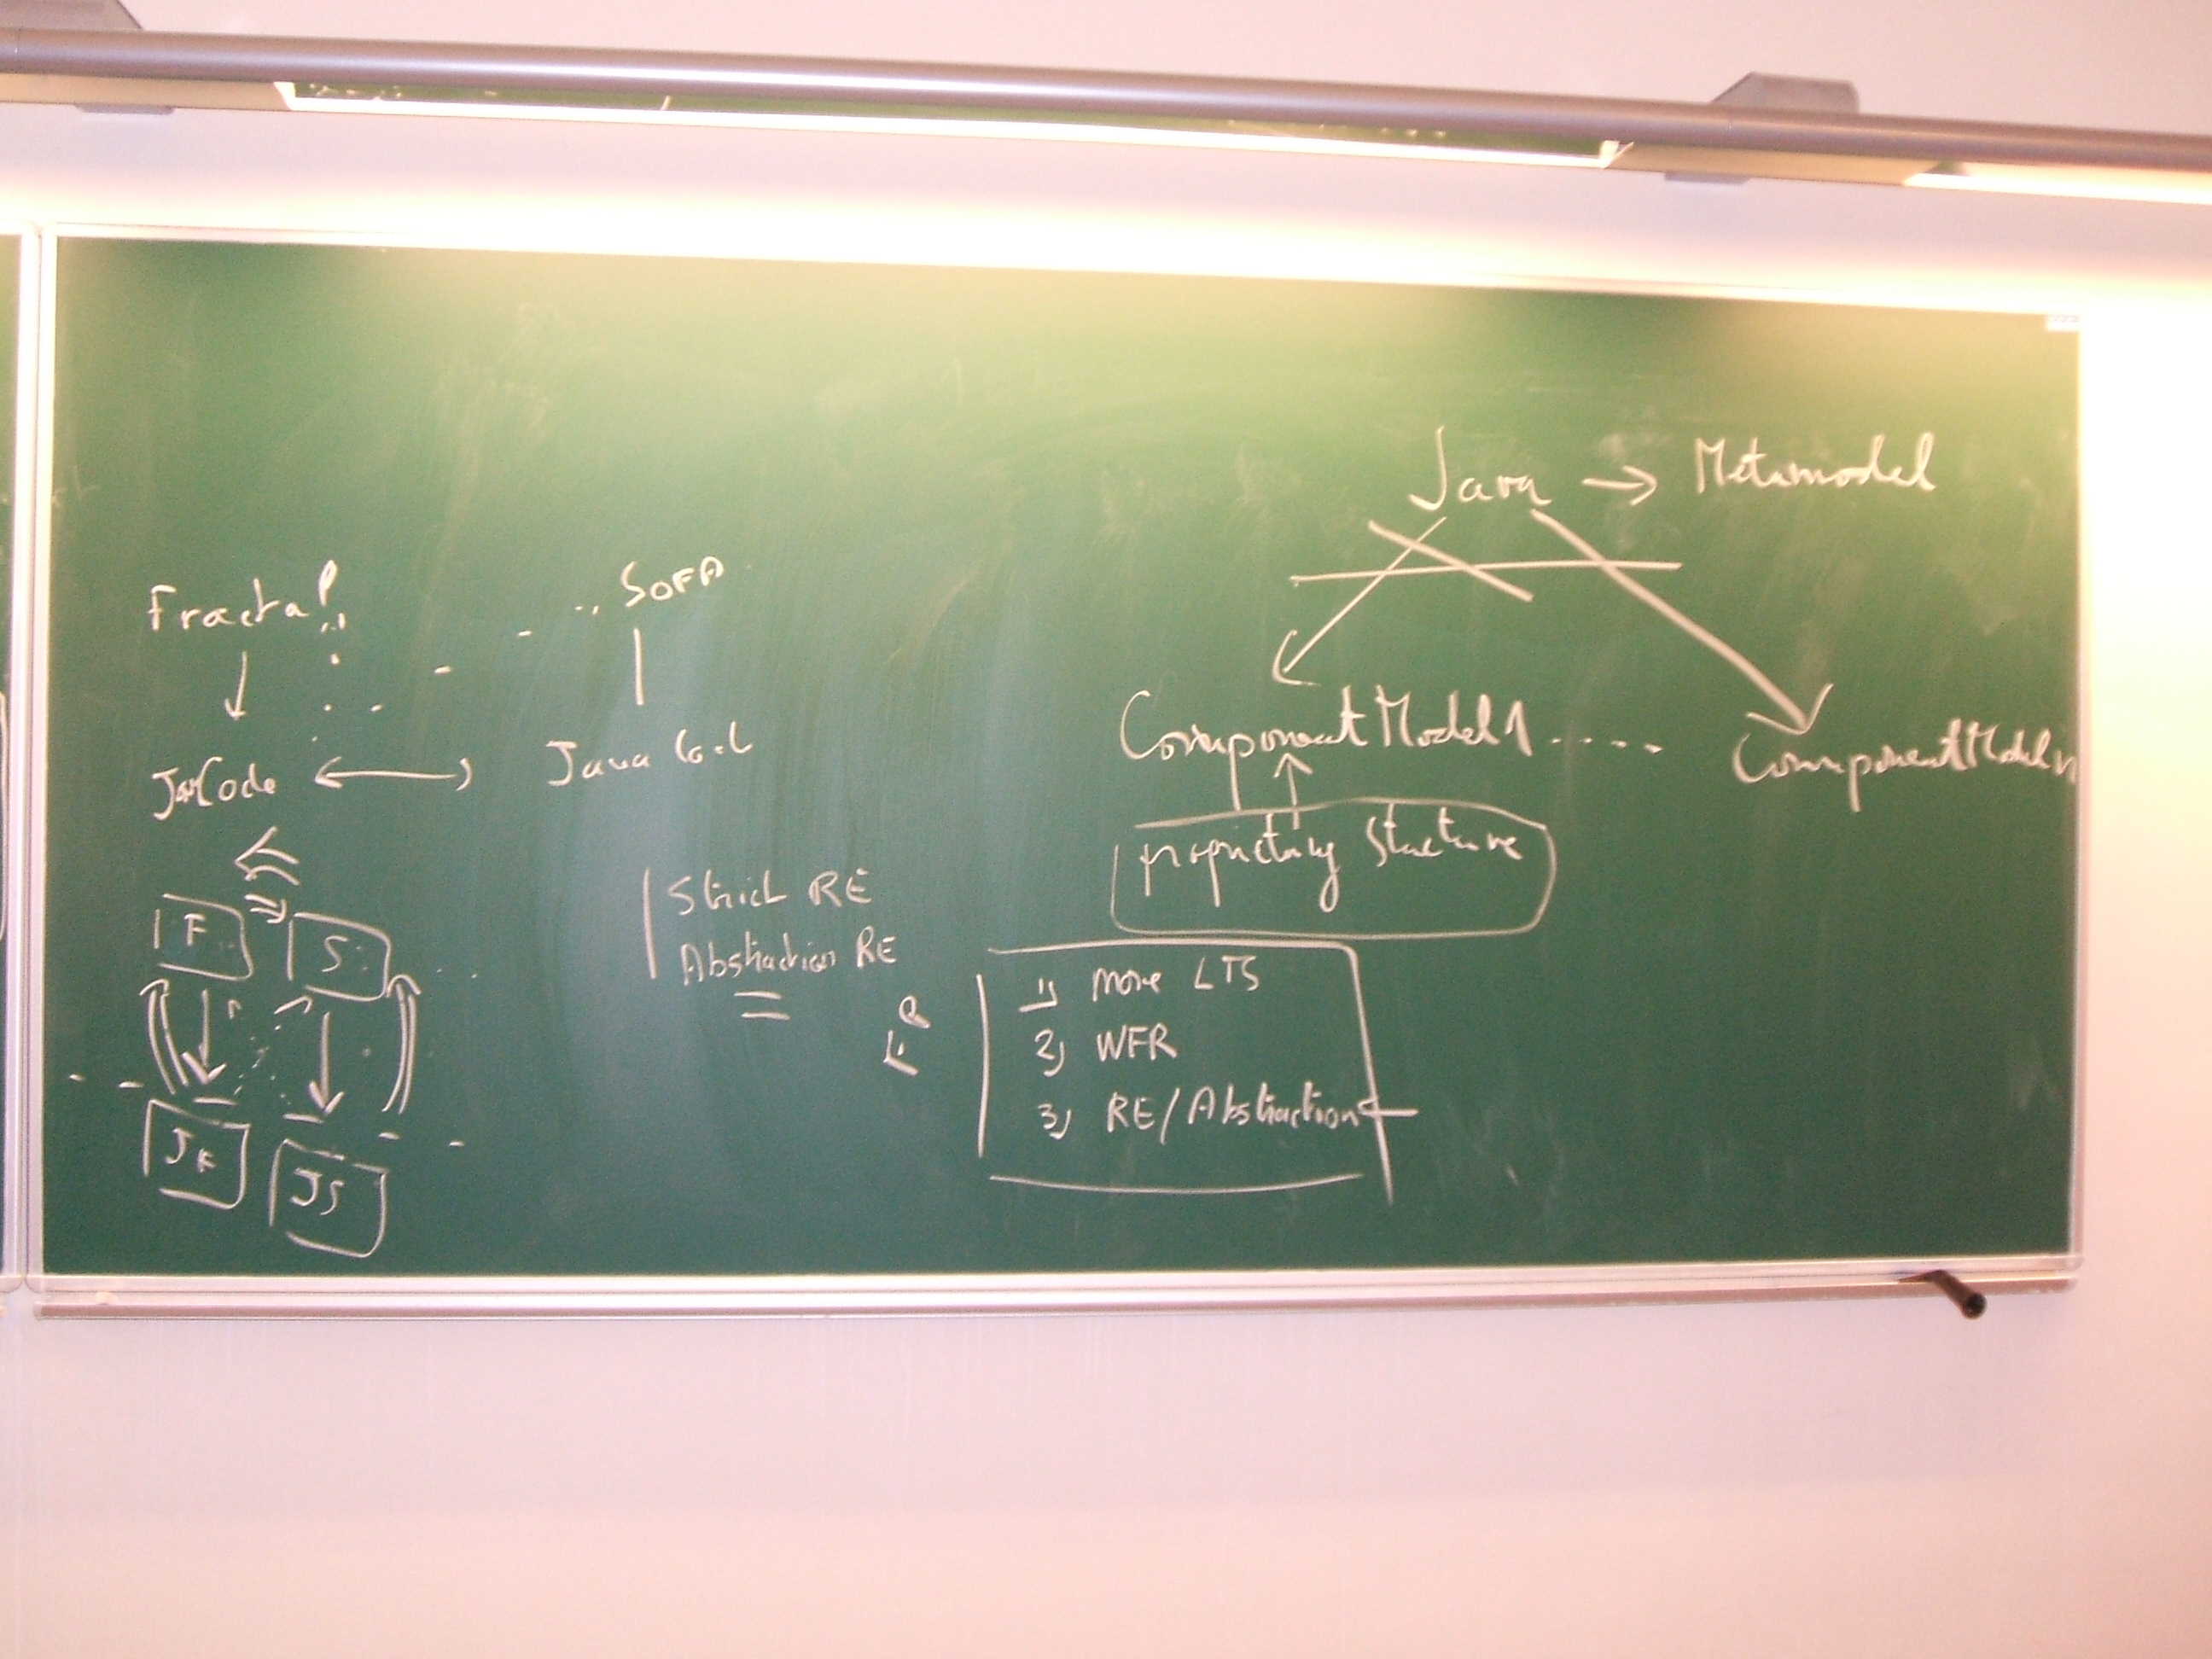 Fractal
SOFA
JavCode
Java Cod
F
S
JF
JS
Strict RE
Abstraction RE
Java → Metamodel
ComponentModel1 ..... ComponentModel n
proprietary structure
1) more LTS
2) WFR
3) RE/Abstraction